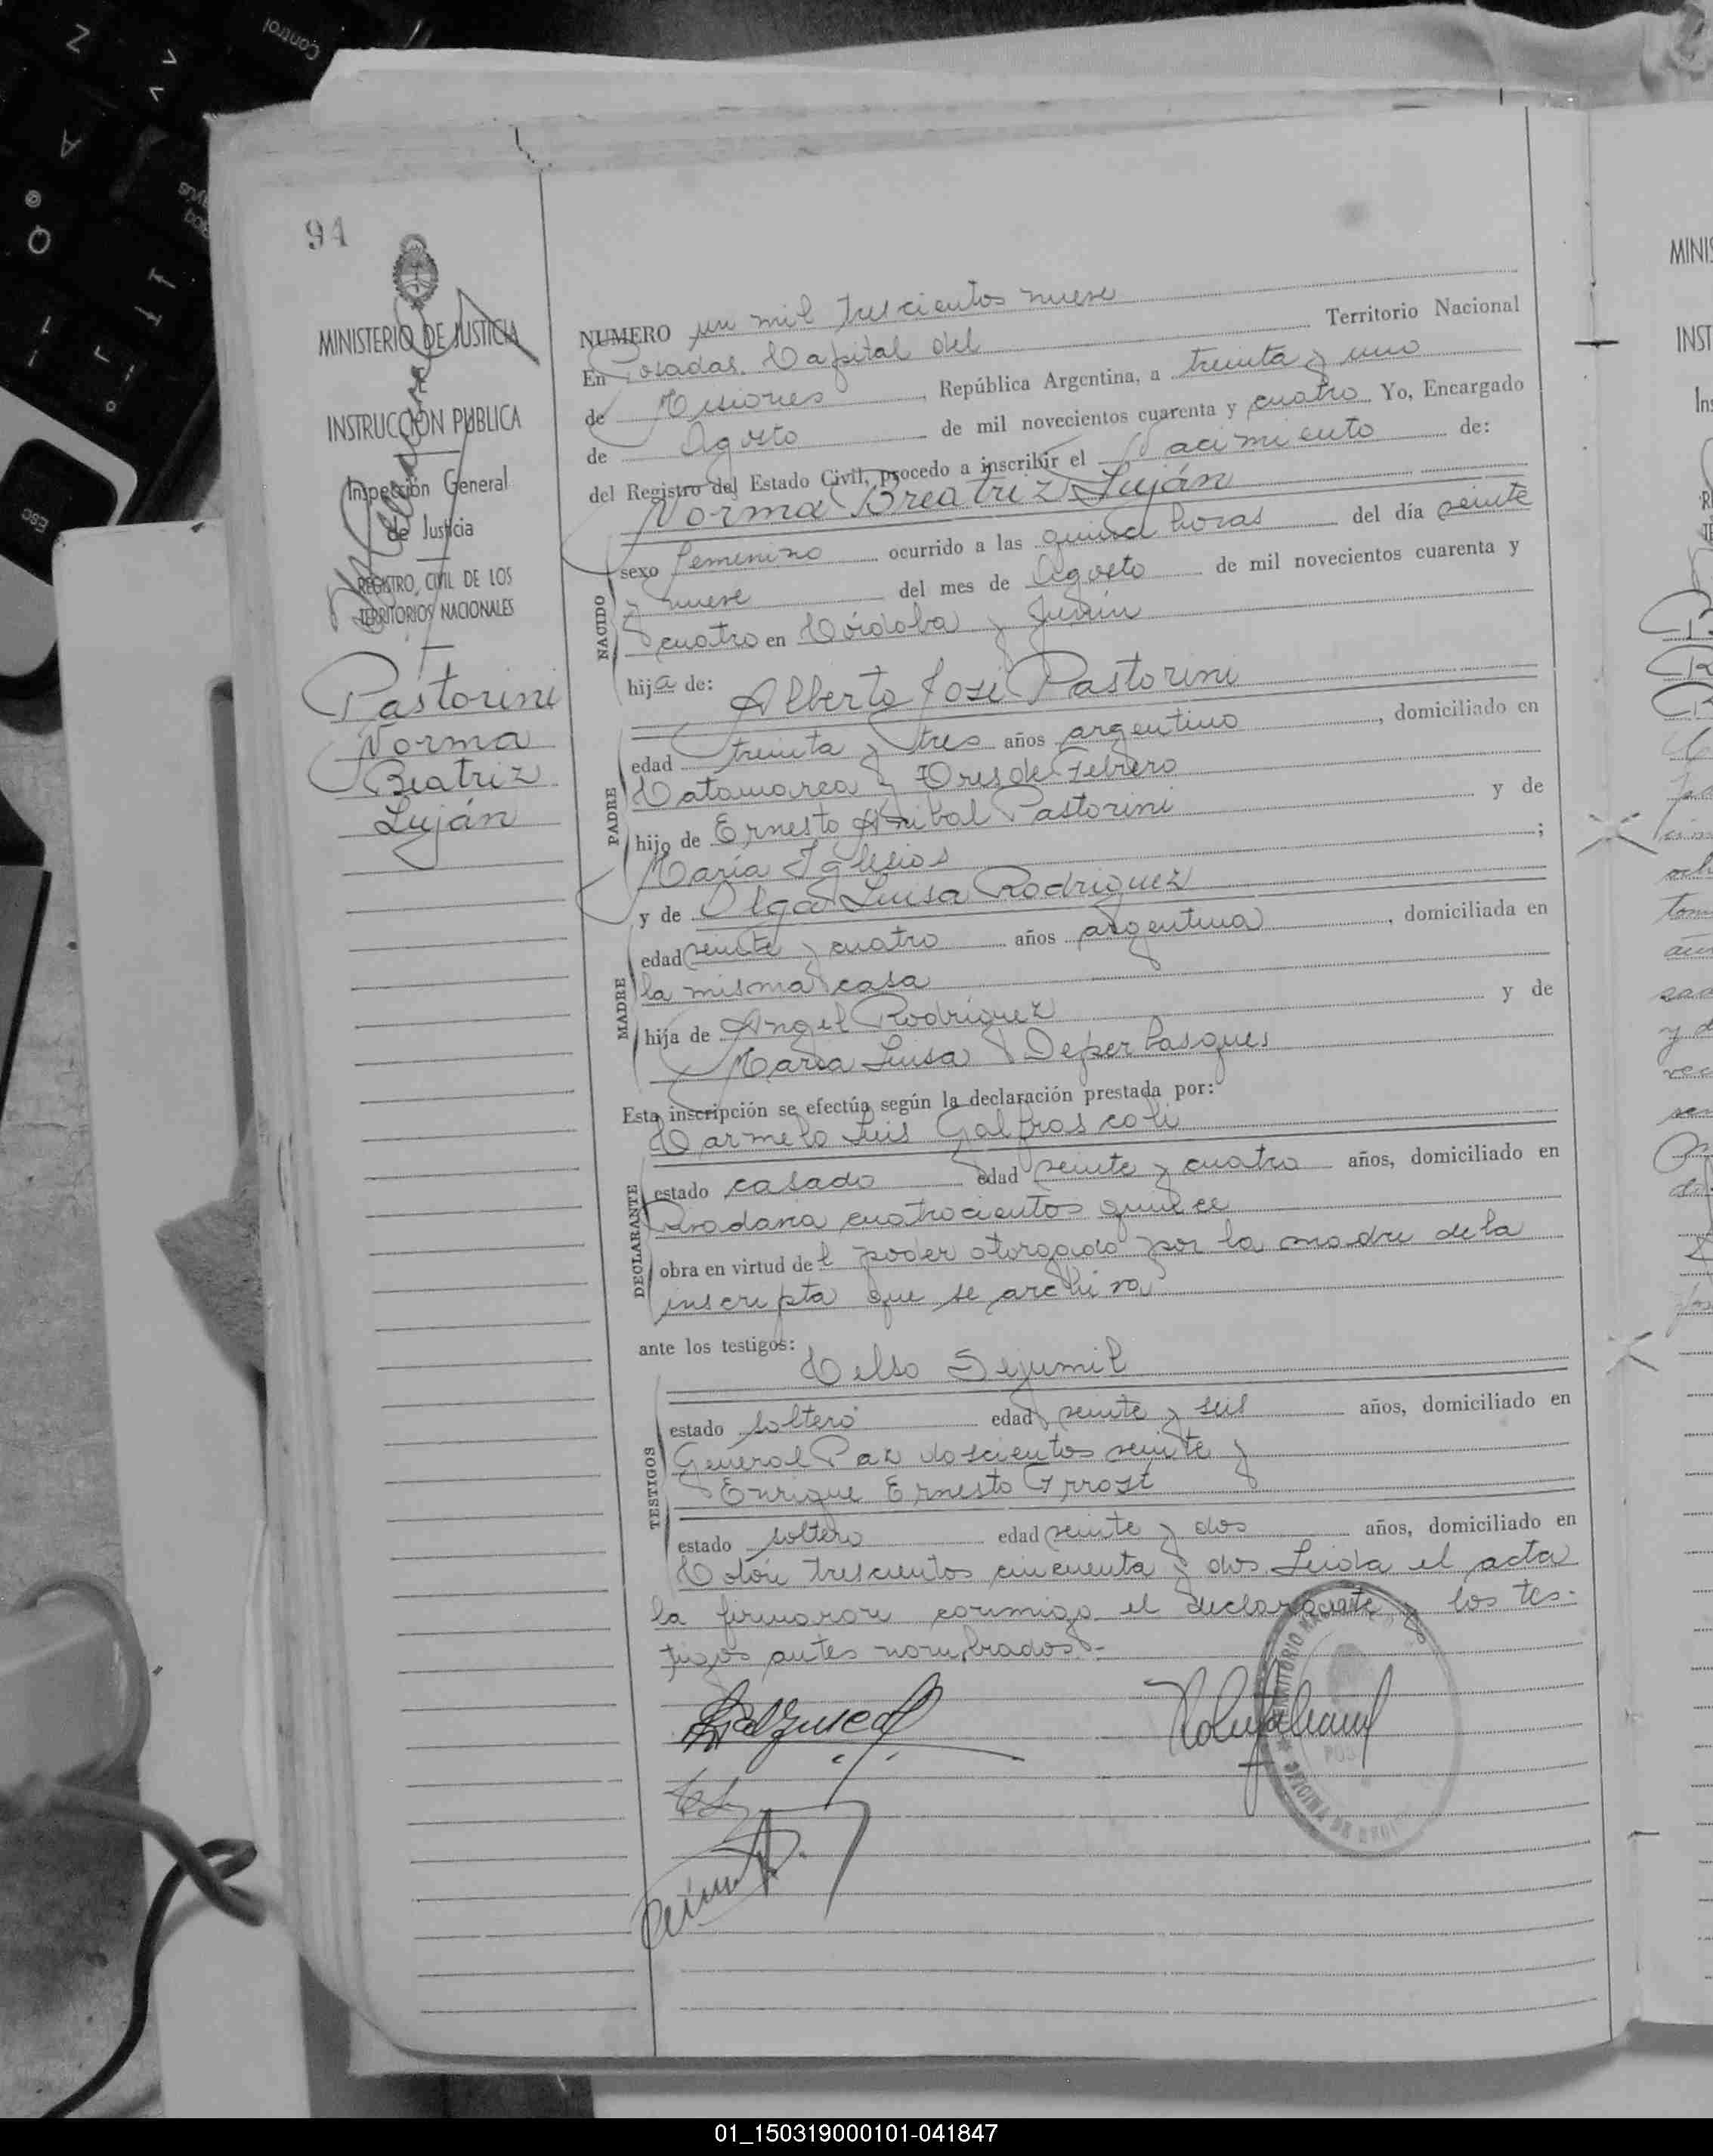 94
MINISTERIO DE JUSTICIA
INSTRUCCION PUBLICA
Inspección General
de Justicia
REGISTRO CIVIL DE LOS
TERRITORIOS NACIONALES
Pastorini
Norma
Beatriz
Luján
NUMERO un mil trescientos nueve
En Posadas. Capital del Territorio Nacional
de Misiones, República Argentina, a treinta y uno
de Agosto de mil novecientos cuarenta y cuatro Yo, Encargado
del Registro del Estado Civil, procedo a inscribir el Nacimiento de:
Norma Breatriz Luján
NACIDO
sexo femenino ocurrido a las quince horas del día veinte
y nueve del mes de Agosto de mil novecientos cuarenta y
cuatro en Córdoba y Junín
hija de: Alberto José Pastorini
PADRE
edad treinta y tres años argentino, domiciliado en
Catamarca y Tres de Febrero
hijo de Ernesto Anibal Pastorini y de
María Iglesias;
y de Olga Luisa Rodriguez
MADRE
edad veinte y cuatro años argentina, domiciliada en
la misma casa
hija de Angel Rodriguez y de
María Luisa
Esta inscripción se efectúa según la declaración prestada por:
Carmelo Luis
DECLARANTE
estado casado edad veinte y cuatro años, domiciliado en
cuatrocientos quince
obra en virtud del poder otorgado por la madre de la
inscripta que se archiva
ante los testigos:
Celso Sejumil
TESTIGOS
estado soltero edad veinte y seis años, domiciliado en
General Paz doscientos veinte y
Enrique Ernesto
estado soltero edad veinte y dos años, domiciliado en
Colón trescientos cincuenta y dos. Leida el acta
la firmaron conmigo el declarante y los tes-
tigos antes nombrados.-
OFICINA DE
MINIS
INST
Ins
01_150319000101-041847